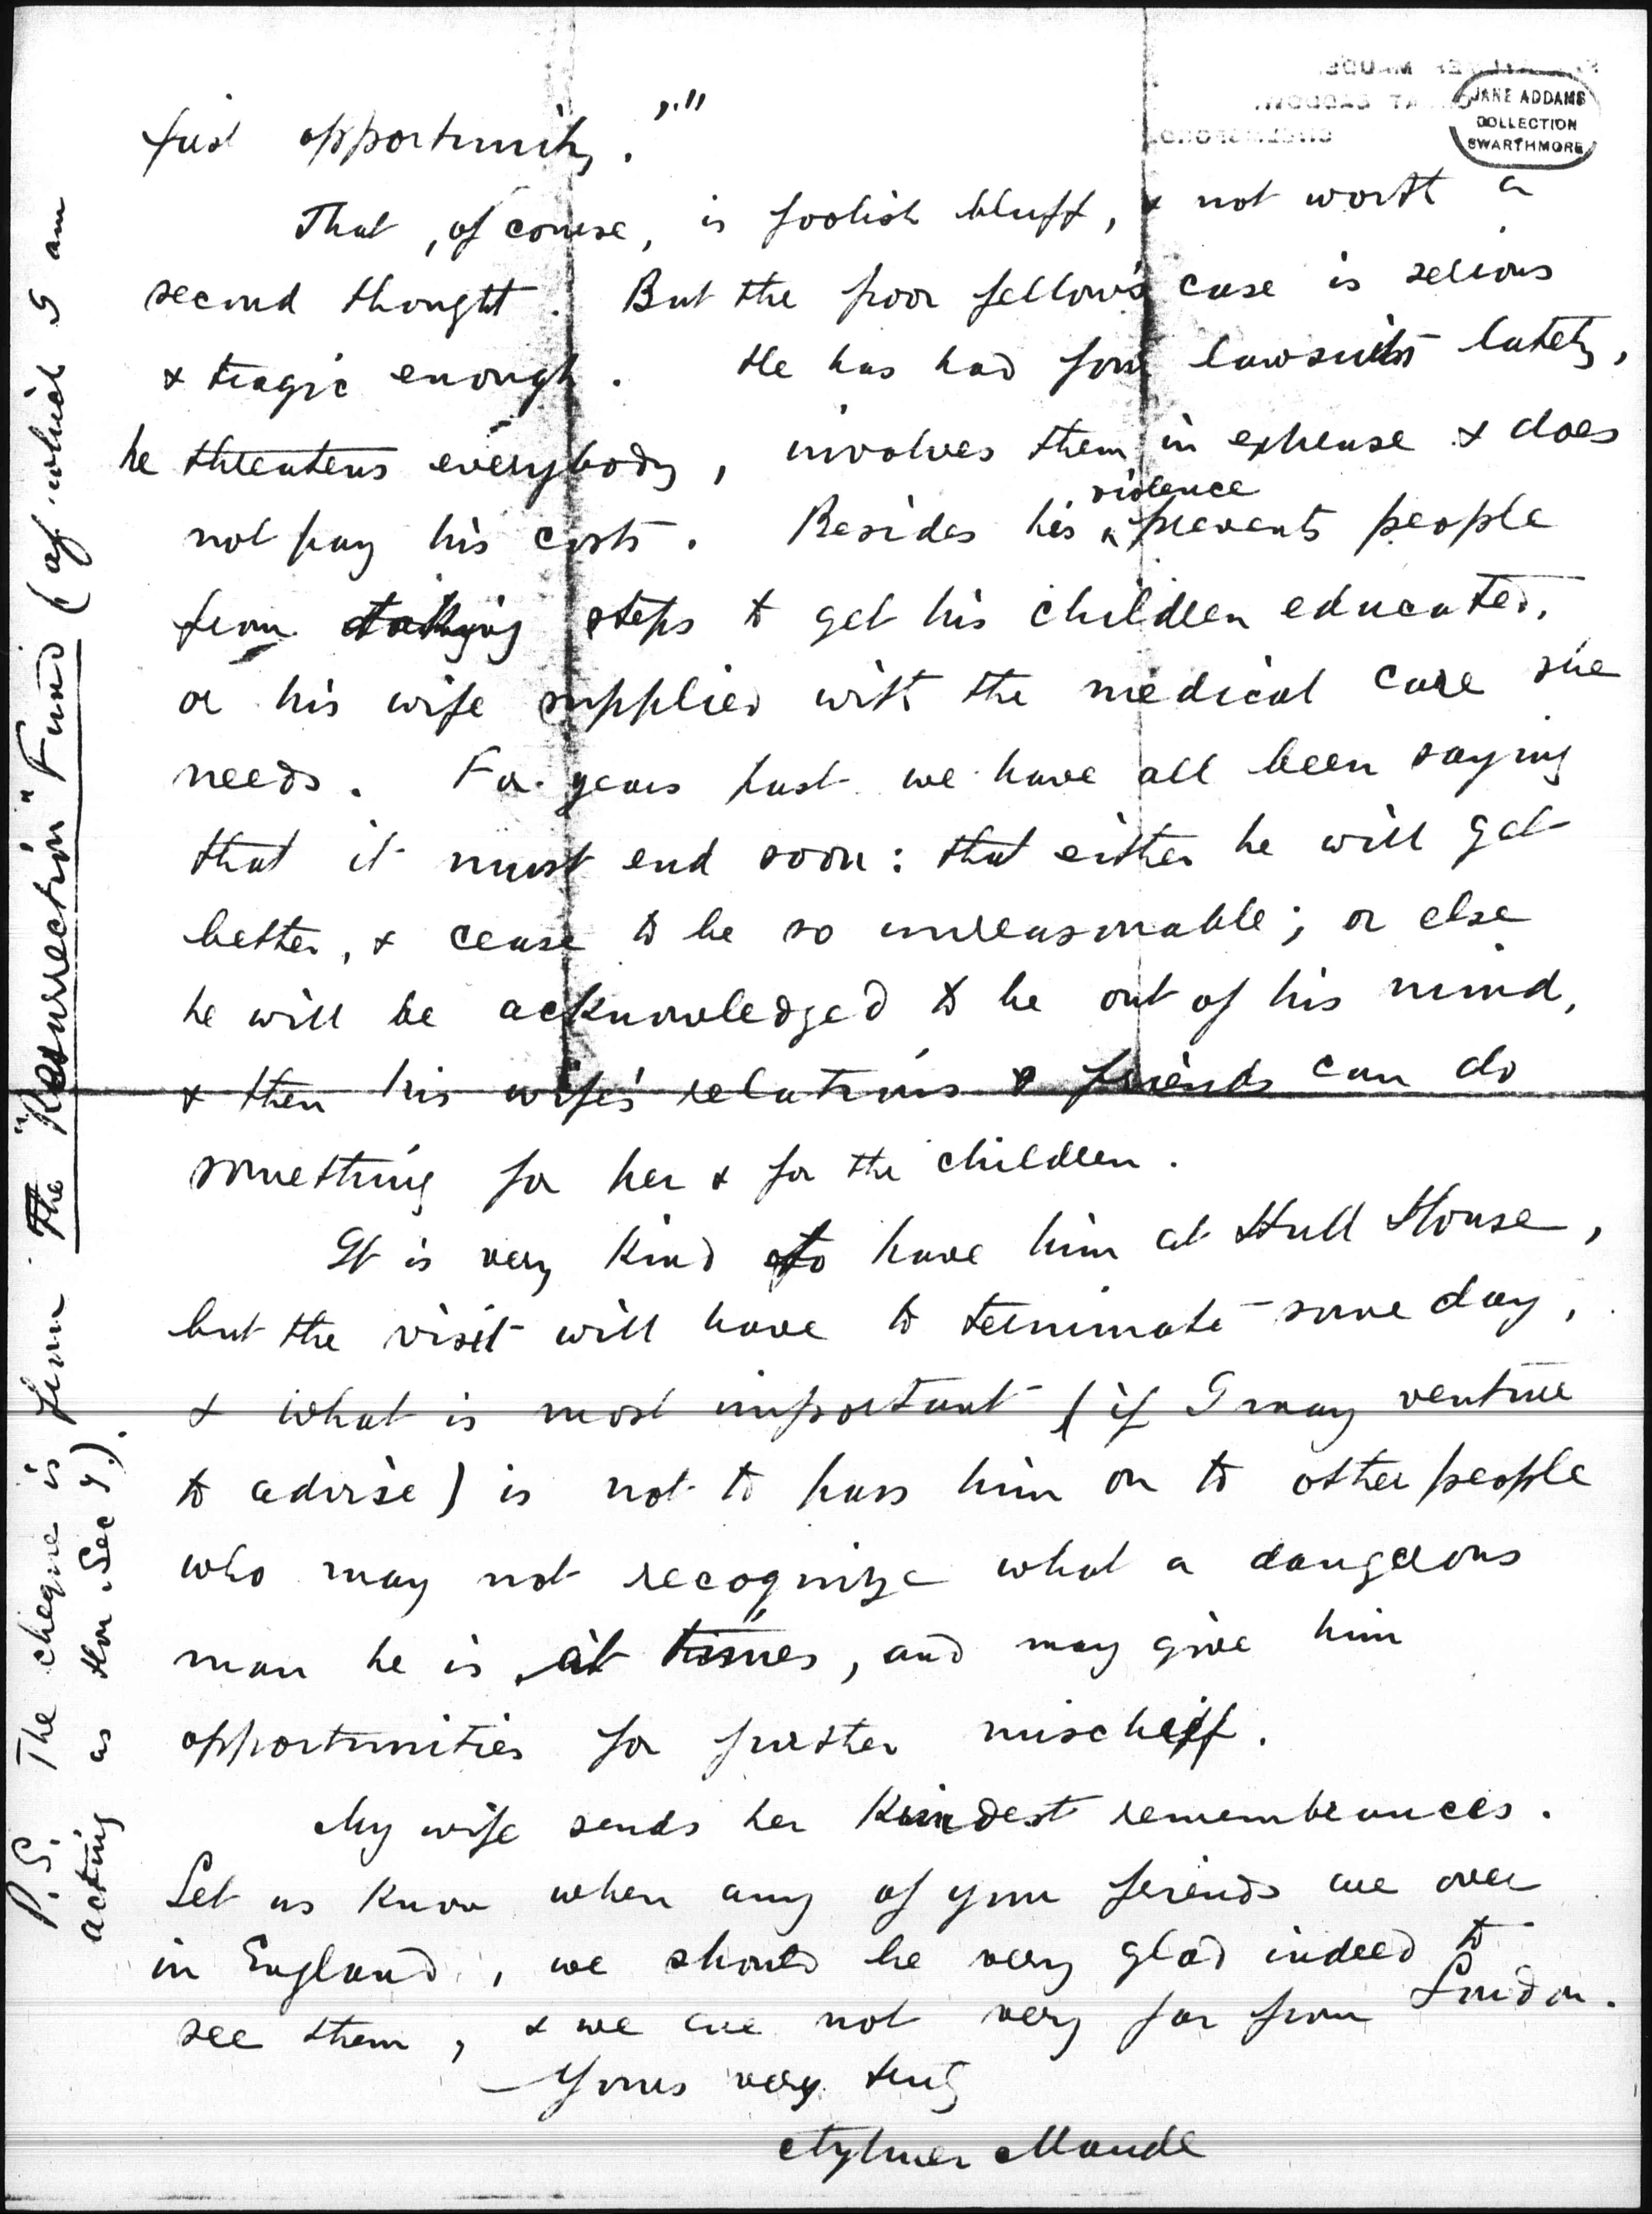 JANE ADDAMS
COLLECTION
SWARTHMORE
first opportunity."'"
That, of course, is foolish bluff, & not worth a
second thought. But the poor fellow's case is serious
& tragic enough. He has had four lawsuits lately,
he threatens everybody, involves them in expense & does
not pay his costs. Besides his violence prevents people
from taking steps to get his children educated,
or his wife supplied with the medical care she
needs. For years past we have all been saying
that it must end soon: that either he will get
better, & cease to be so unreasonable; or else
he will be acknowledged to be out of his mind,
& then his wife's relations & friends can do
something for her & for the children.
It is very kind to have him at Hull House,
but the visit will have to terminate some day,
& what is most important (if I may venture
to advise) is not to pass him on to other people
who may not recognize what a dangerous
man he is at times, and may give him
opportunities for further mischeif.
My wife sends her kindest remembrances.
Let us know when any of your friends are over
in England, we should be very glad indeed to
see them, & we are not very far from London.
Yours very truly
Aylmer Maude
P.S. The cheque is from The "Resurrection" Fund (of which I am
acting as Hon. Secy).